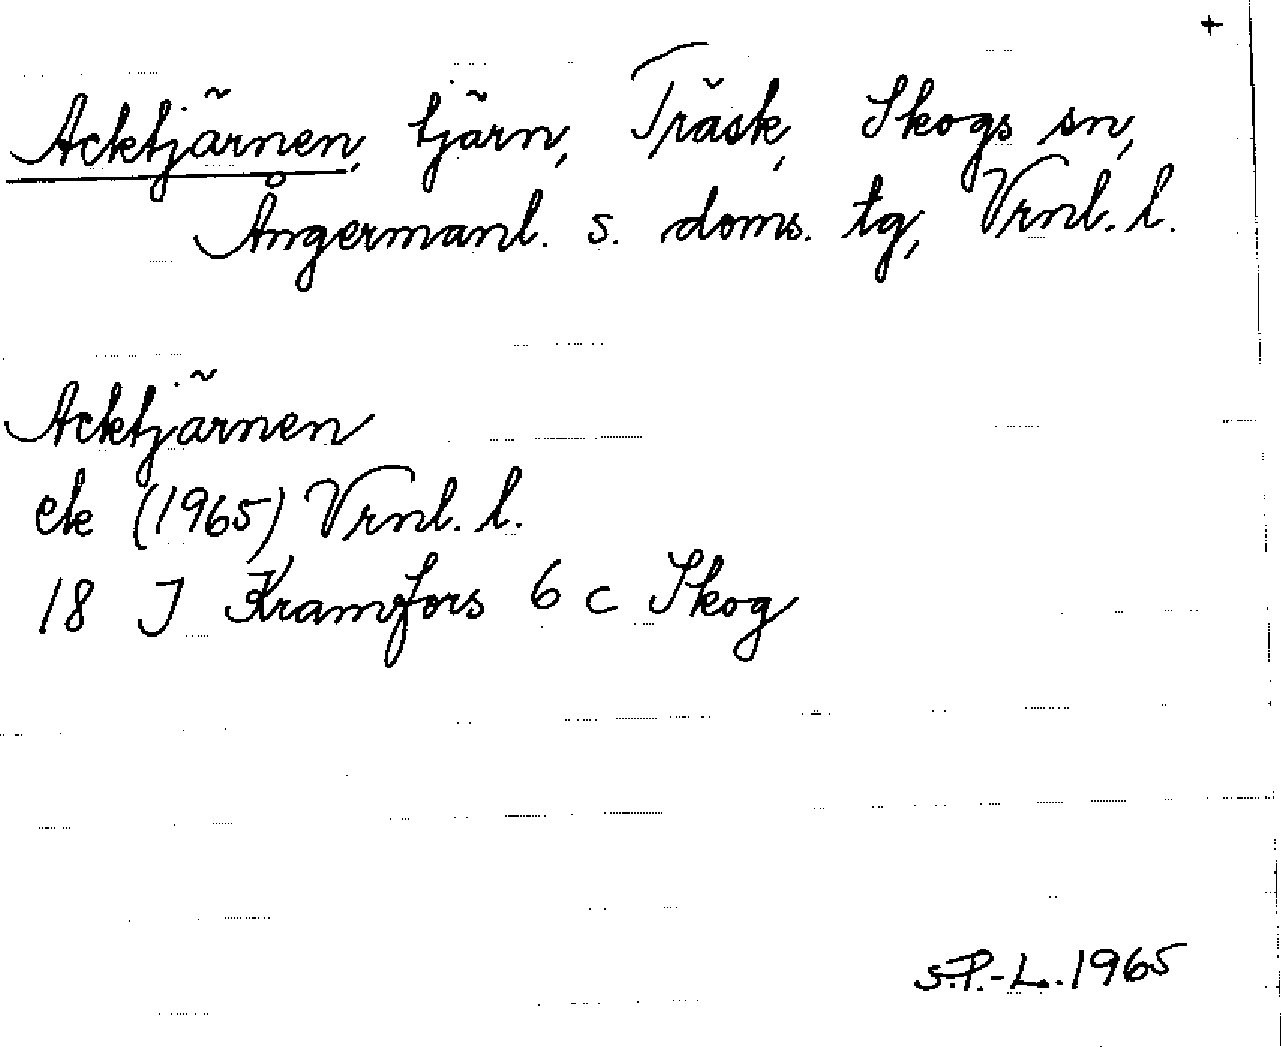 +
Acktjärnen, tjärn, Träsk, Skogs sn,
Ångermanl. s. doms. tg, Vrnl. l.
Acktjärnen
ek (1965) Vrnl. l.
18 J Kramfors 6 c Skog
S.P.-L. 1965